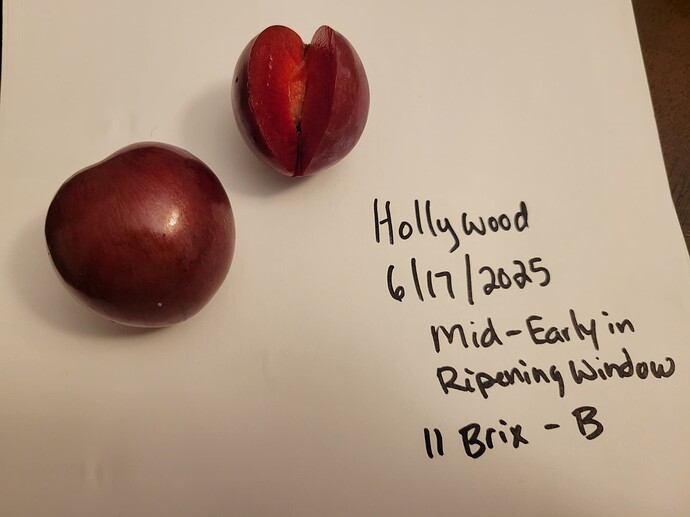 Hollywood
6/17/2025
Mid-Early in
Ripening Window
11 Brix - B